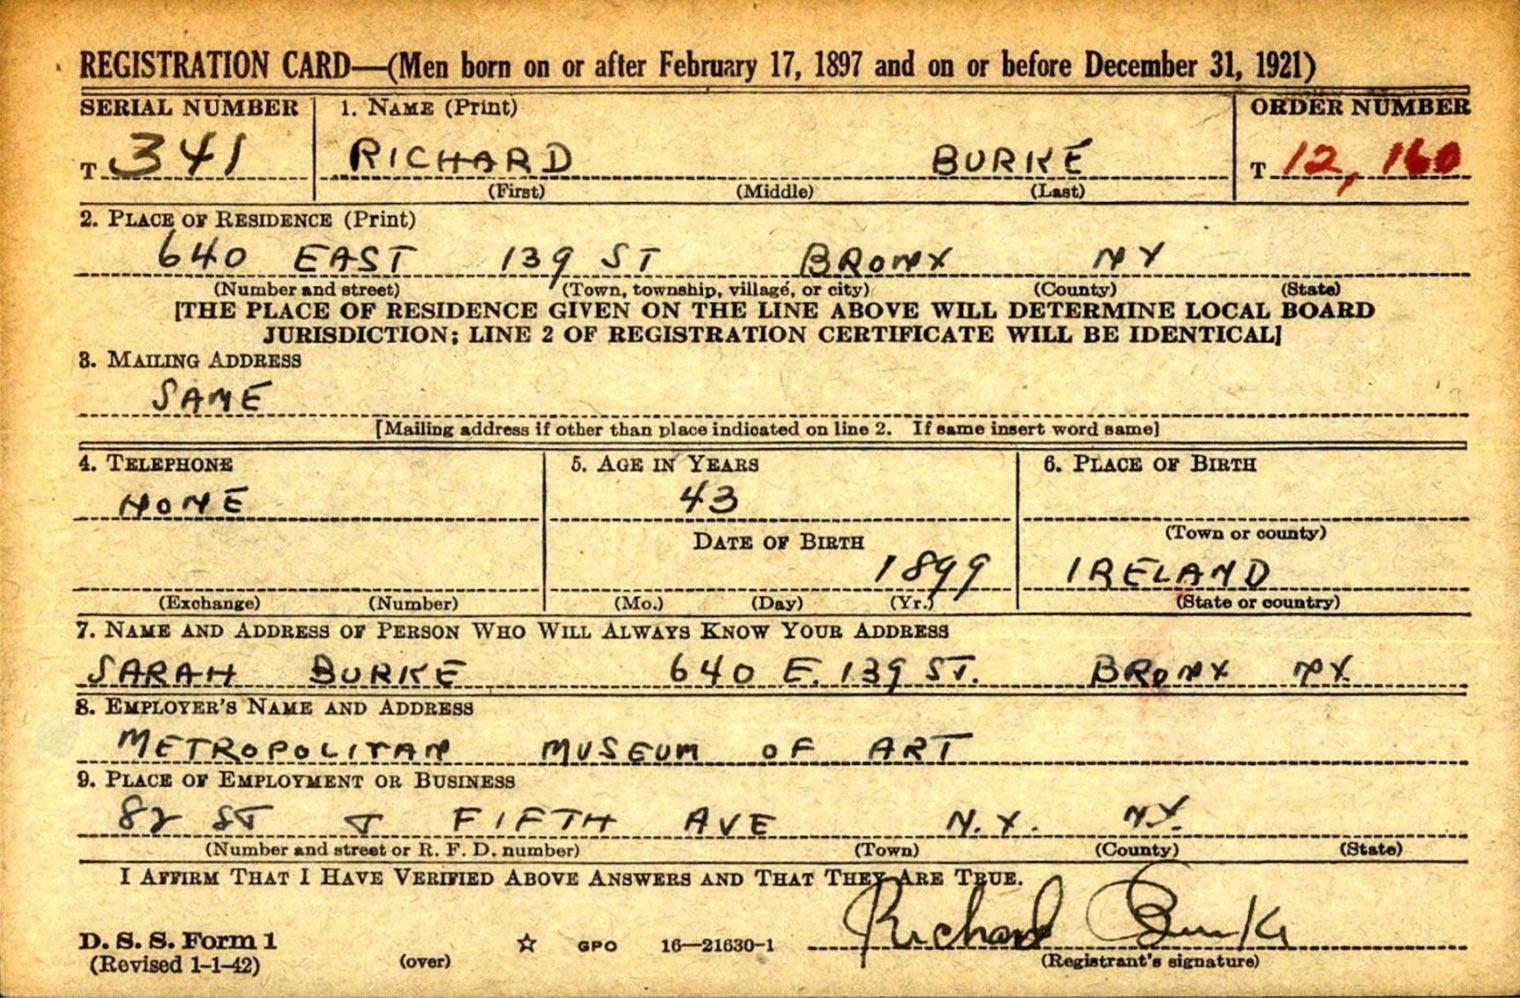 REGISTRATION CARD—(Men born on or after February 17, 1897 and on or before December 31, 1921)
SERIAL NUMBER 1. NAME (Print) ORDER NUMBER
T 341 RICHARD BURKE T 12,160
(First) (Middle) (Last)
2. PLACE OF RESIDENCE (Print)
640 EAST 139 ST BRONX NY
(Number and street) (Town, township, village, or city) (County) (State)
[THE PLACE OF RESIDENCE GIVEN ON THE LINE ABOVE WILL DETERMINE LOCAL BOARD
JURISDICTION; LINE 2 OF REGISTRATION CERTIFICATE WILL BE IDENTICAL]
3. MAILING ADDRESS
SAME
[Mailing address if other than place indicated on line 2. If same insert word same]
4. TELEPHONE 5. AGE IN YEARS 6. PLACE OF BIRTH
NONE 43
DATE OF BIRTH (Town or county)
1899 IRELAND
(Exchange) (Number) (Mo.) (Day) (Yr.) (State or country)
7. NAME AND ADDRESS OF PERSON WHO WILL ALWAYS KNOW YOUR ADDRESS
SARAH BURKE 640 E. 139 ST. BRONX NY.
8. EMPLOYER'S NAME AND ADDRESS
METROPOLITAN MUSEUM OF ART
9. PLACE OF EMPLOYMENT OR BUSINESS
82 ST & FIFTH AVE N.Y. NY.
(Number and street or R. F. D. number) (Town) (County) (State)
I AFFIRM THAT I HAVE VERIFIED ABOVE ANSWERS AND THAT THEY ARE TRUE.
Richard Burke
D. S. S. Form 1 ☆ GPO 16—21630-1
(Revised 1-1-42) (over) (Registrant's signature)